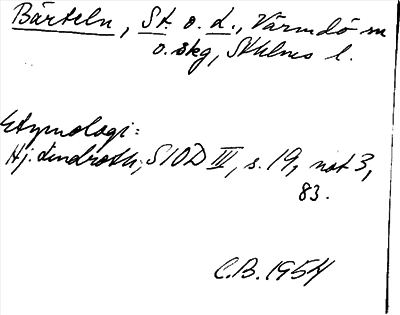 Bärteln, St. o. L., Värmdö sn
o. skg, Sthlms l.
Etymologi:
Hj. Lindroth, SIOD III, s. 19, not 3,
83.
C.B. 1954